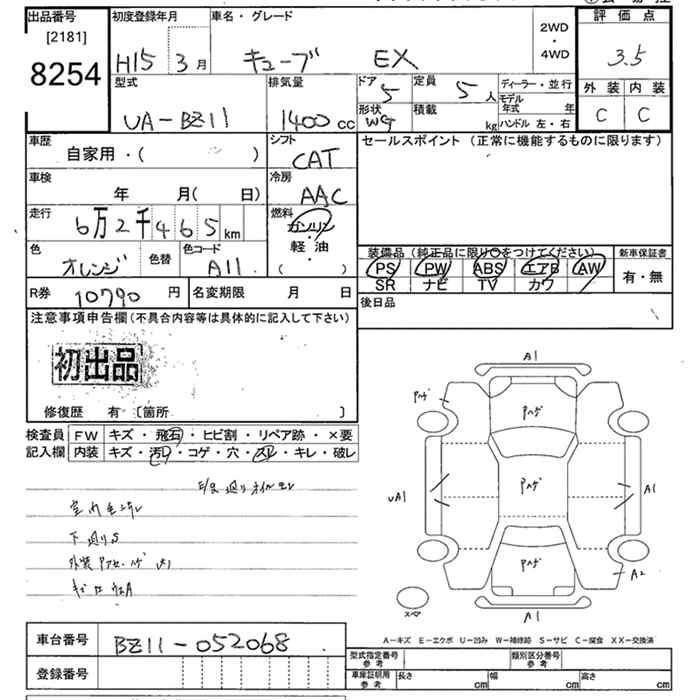 出品番号
[2181]
8254
初度登録年月
H15 3月
車名・グレード
キューブ EX
2WD
・
4WD
評価点
3.5
外装 内装
C C
型式
UA-BZ11
排気量
1400cc
ドア
5
定員
5人
形状
WG
積載
kg
ディーラー・並行
モデル年式 年
ハンドル 左・右
車歴
自家用・( )
シフト
CAT
セールスポイント (正常に機能するものに限ります)
車検
年 月( 日)
冷房
AAC
走行
6万2千465km
燃料
ガソリン
・
軽・油
( )
色
オレンジ
色替
色コード
A11
装備品(純正品に限り〇をつけてください)
PS PW ABS エアB AW
SR ナビ TV カワ
新車保証書
有・無
R券 10790円
名変期限 月 日
後日品
注意事項申告欄(不具合内容等は具体的に記入して下さい)
初出品
修復歴 有 〔箇所 〕
検査員記入欄
FW キズ・飛石・ヒビ割・リペア跡・×要
内装 キズ・汚レ・コゲ・穴・スレ・キレ・破レ
下廻りS
A1
Pハゲ
Pハゲ
Pハゲ
Pハゲ
UA1
A1
A2
A1
スペア
A-キズ E-エクボ U-凹み W-補修跡 S-サビ C-腐食 XX-交換済
車台番号 BZ11-052068
登録番号
型式指定番号 参考
類別区分番号 参考
車庫証明用 参考
長さ cm 幅 cm 高さ cm